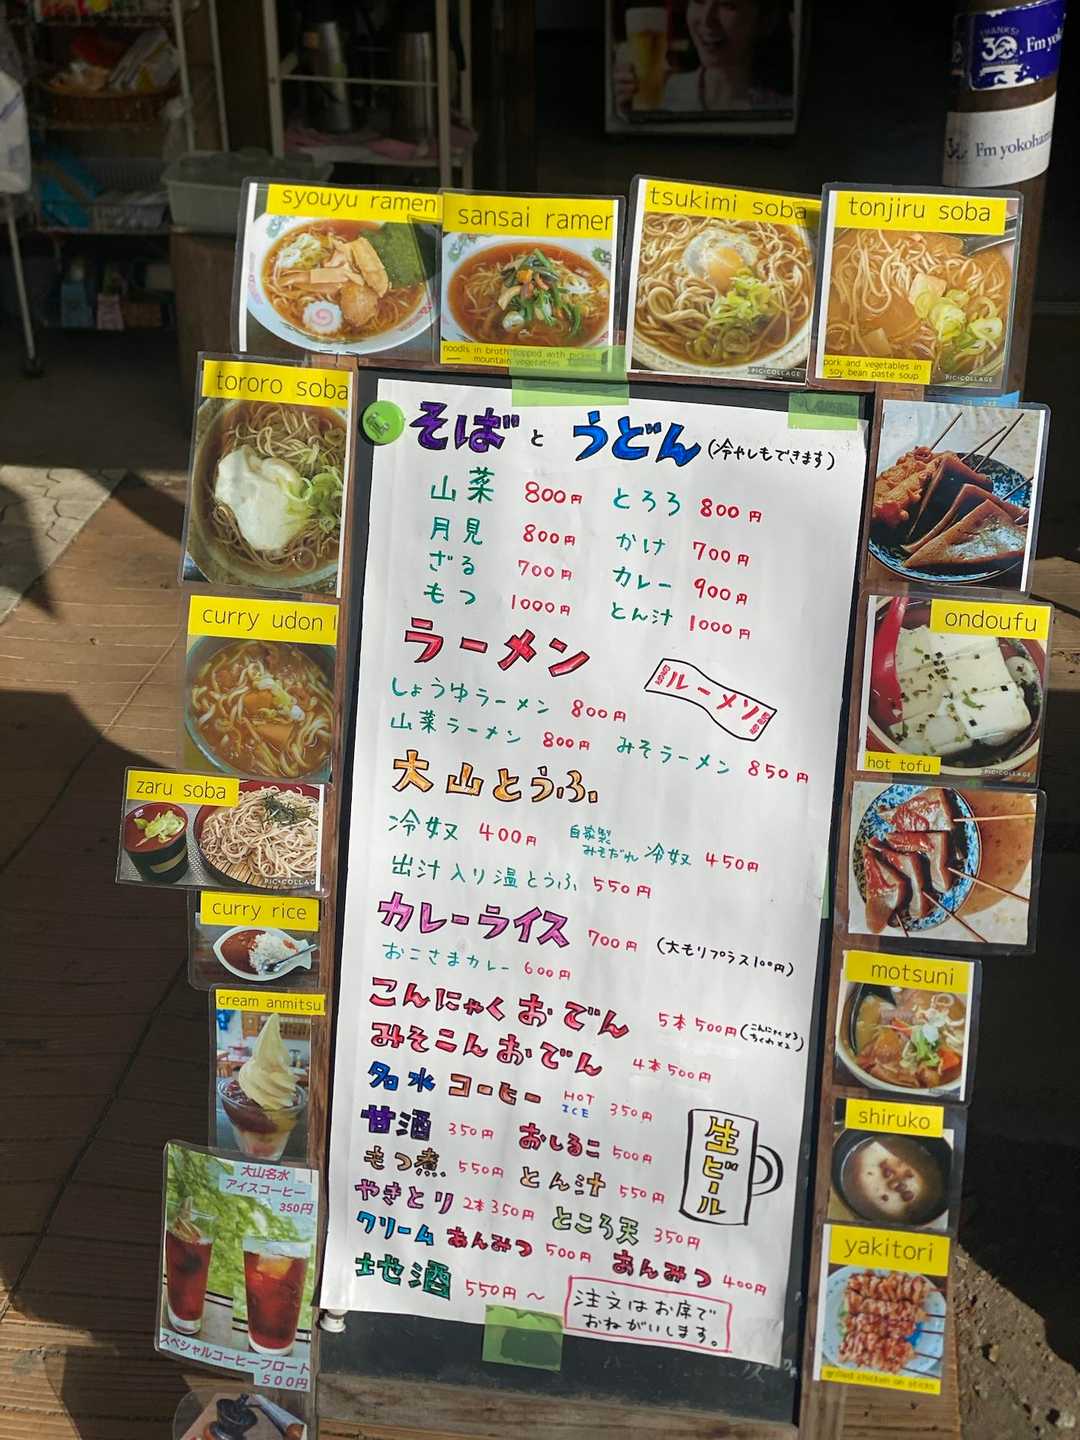 THANKS!
30
ANNIVERSARY
I'm yoko
I'm yokohama
syouyu ramen
sansai ramen
noodls in broth topped with picked
mountain vegetables
tsukimi soba
PIC•COLLAGE
tonjiru soba
pork and vegetables in
soy bean paste soup
PIC•COLLAGE
tororo soba
curry udon
zaru soba
PIC•COLLAGE
curry rice
cream anmitsu
大山名水
アイスコーヒー
350円
スペシャルコーヒーフロート
500円
そばと うどん (冷やしもできます)
山菜 800円 とろろ 800円
月見 800円 かけ 700円
ざる 700円 カレー 900円
もつ 1000円 とん汁 1000円
ラーメン
ルーメソ
しょうゆラーメン 800円
山菜ラーメン 800円 みそラーメン 850円
大山とうふ
冷奴 400円 自家製みそだれ 冷奴 450円
出汁入り温とうふ 550円
カレーライス 700円 (大もりプラス100円)
おこさまカレー 600円
こんにゃくおでん 5本500円(こんにゃく×3 ちくわ×2)
みそこんおでん 4本500円
名水コーヒー HOT ICE 350円
甘酒 350円 おしるこ 500円
もつ煮 550円 とん汁 550円
やきとり 2本350円 ところ天 350円
クリームあんみつ 500円 あんみつ 400円
地酒 550円～
生ビール
注文はお席で
おねがいします。
ondoufu
hot tofu
PIC•COLLAGE
motsuni
shiruko
yakitori
grilled chicken on sticks